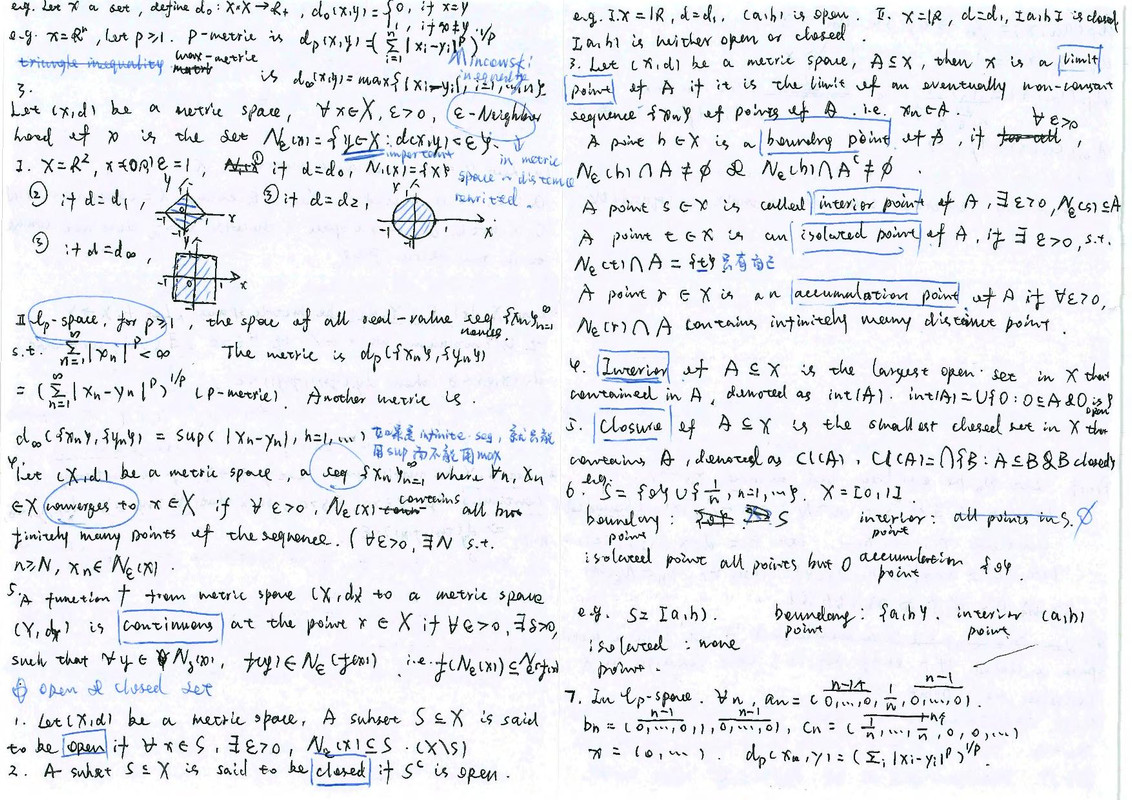 e.g. Let X a set, define d₀: X×X→R₊, d₀(x,y)={0, if x=y
1, if x≠y
e.g. X=Rⁿ, Let p≥1. P-metric is dₚ(x,y)=(∑ᵢ₌₁ⁿ |xᵢ-yᵢ|ᵖ)^{1/p}
triangle inequality max-metric Mincowski
is d∞(x,y)=max{|xᵢ-yᵢ|, i=1,...,n}. inequality
3.
Let (X,d) be a metric space, ∀x∈X, ε>0, ε-Neighbor
hood of x is the set Nε(x)={y∈X: d(x,y)<ε}.
important in metric
I. X=R², x=(0,0) ε=1, ① if d=d₀, N₁(x)={x}
space ~ distance
② if d=d₁, ③ if d=d₂,
③ if d=d∞,
II lₚ-space, for p≥1, the space of all real-value sequences {xₙ}ₙ₌₁^∞
s.t. ∑ₙ₌₁^∞ |xₙ|ᵖ<∞ The metric is dₚ({xₙ},{yₙ})
=(∑ₙ₌₁^∞ |xₙ-yₙ|ᵖ)^{1/p} (p-metric). Another metric is.
d∞({xₙ},{yₙ})=sup(|xₙ-yₙ|, n=1,...) 如果是infinite seq, 就只能
用sup而不能用max
4. Let (X,d) be a metric space, a seq {xₙ}ₙ₌₁^∞ where ∀n, xₙ
∈X converges to x∈X if ∀ε>0, Nε(x) contains all but
finitely many points of the sequence. (∀ε>0, ∃N s.t.
n≥N, xₙ∈Nε(x).
5. A function f from metric space (X,dx) to a metric space
(Y,dy) is continuous at the point x∈X if ∀ε>0, ∃δ>0,
such that ∀y∈Nδ(x), f(y)∈Nε(f(x)) i.e. f(Nδ(x))⊆Nε(f(x))
open & closed set
1. Let (X,d) be a metric space, A subset S⊆X is said
to be open if ∀x∈S, ∃ε>0, Nε(x)⊆S. (X\S)
2. A subset S⊆X is said to be closed if Sᶜ is open.
e.g. I. X=|R, d=d₁, (a,b) is open. II. X=|R, d=d₁, [a,b] is closed.
[a,b) is neither open or closed.
3. Let (X,d) be a metric space, A⊆X, then x is a limit
point of A if it is the limit of an eventually non-constant
sequence {xₙ} of points of A. i.e. xₙ∈A.
A point b∈X is a boundry point of A, if for all, ∀ε>0
Nε(b)∩A≠∅ & Nε(b)∩Aᶜ≠∅.
A point s∈X is called interior point of A, ∃ε>0, Nε(s)⊆A
A point t∈X is an isolated point of A, if ∃ε>0, s.t.
Nε(t)∩A={t} 只有自己
A point r∈X is an accumulation point of A if ∀ε>0,
Nε(r)∩A contains infinitely many distinct point.
4. Interior of A⊆X is the largest open set in X that
contained in A, denoted as int(A). int(A)=∪{O: O⊆A & O is open}
5. Closure of A⊆X is the smallest closed set in X that
contains A, denoted as Cl(A). Cl(A)=∩{B: A⊆B & B closed}
e.g.
6. S={0}∪{1/n, n=1,...}. X=[0,1].
boundary point: S interior: all points in S. ∅
isolated point all points but 0 accumulation point {0}.
e.g. S=[a,b). boundary point: {a,b}. interior point (a,b)
isolated point: none
7. In lₚ-space. ∀n, aₙ=(0,...,0, 1/n, 0,...,0).
bₙ=(0,...,0,1,0,...,0), cₙ=(1/n,...,1/n,0,0,...)
x=(0,...). dₚ(xₙ,y)=(∑ᵢ|xᵢ-yᵢ|ᵖ)^{1/p}.